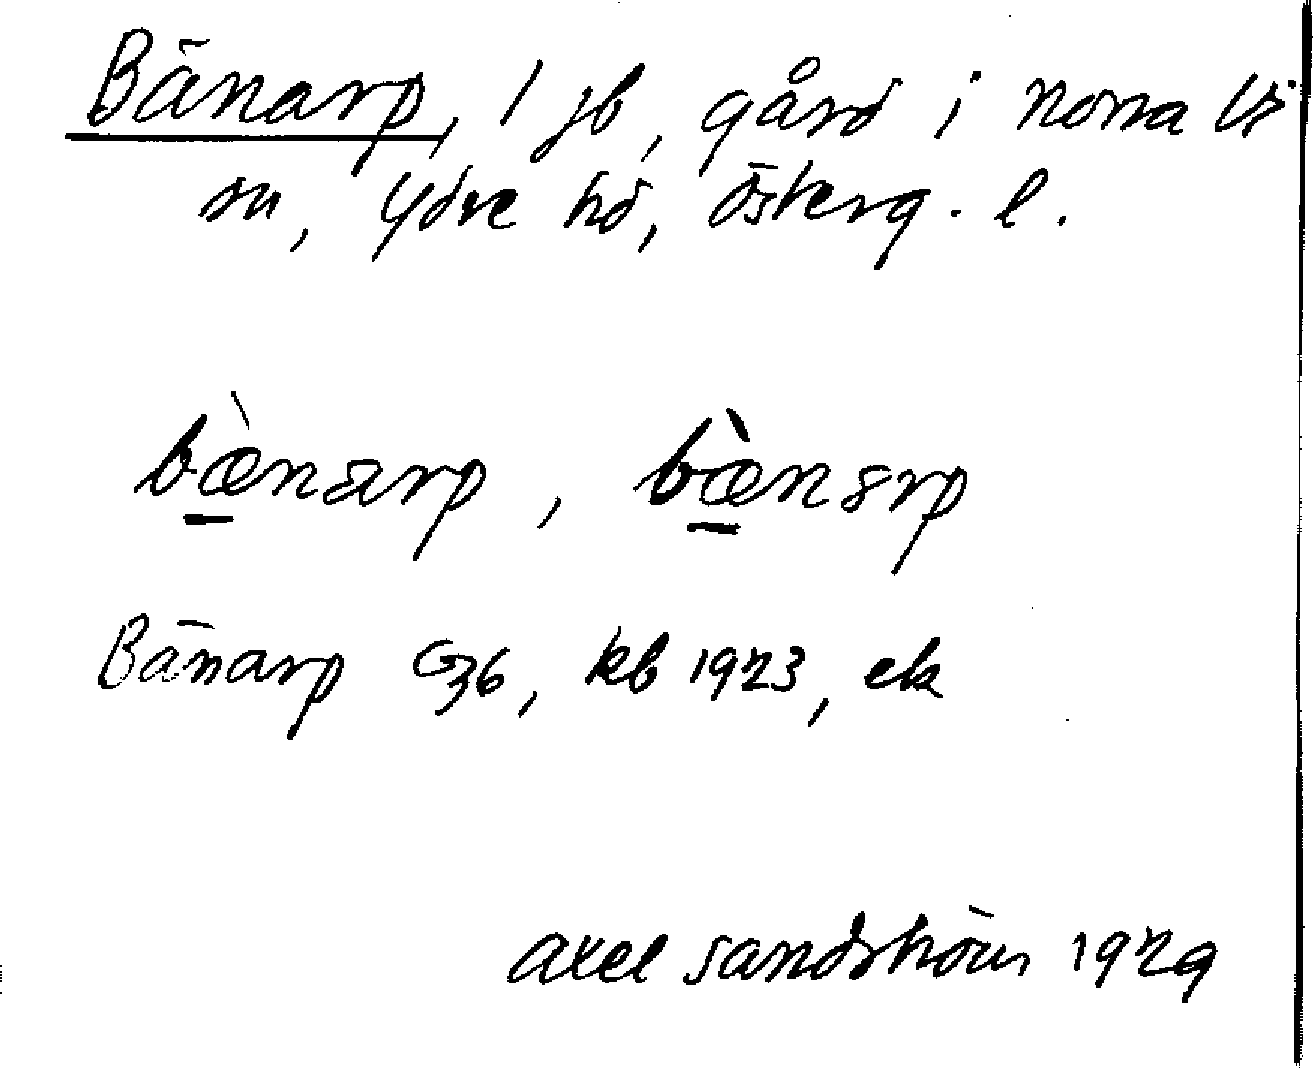 Bänarp, 1 jb, gård i Norra Vi
sn, Ydre hd, Österg. l.
bæ̠̀narp, bæ̠̀nərp
Bänarp G36, kb 1923, ek
Axel Sandström 1929